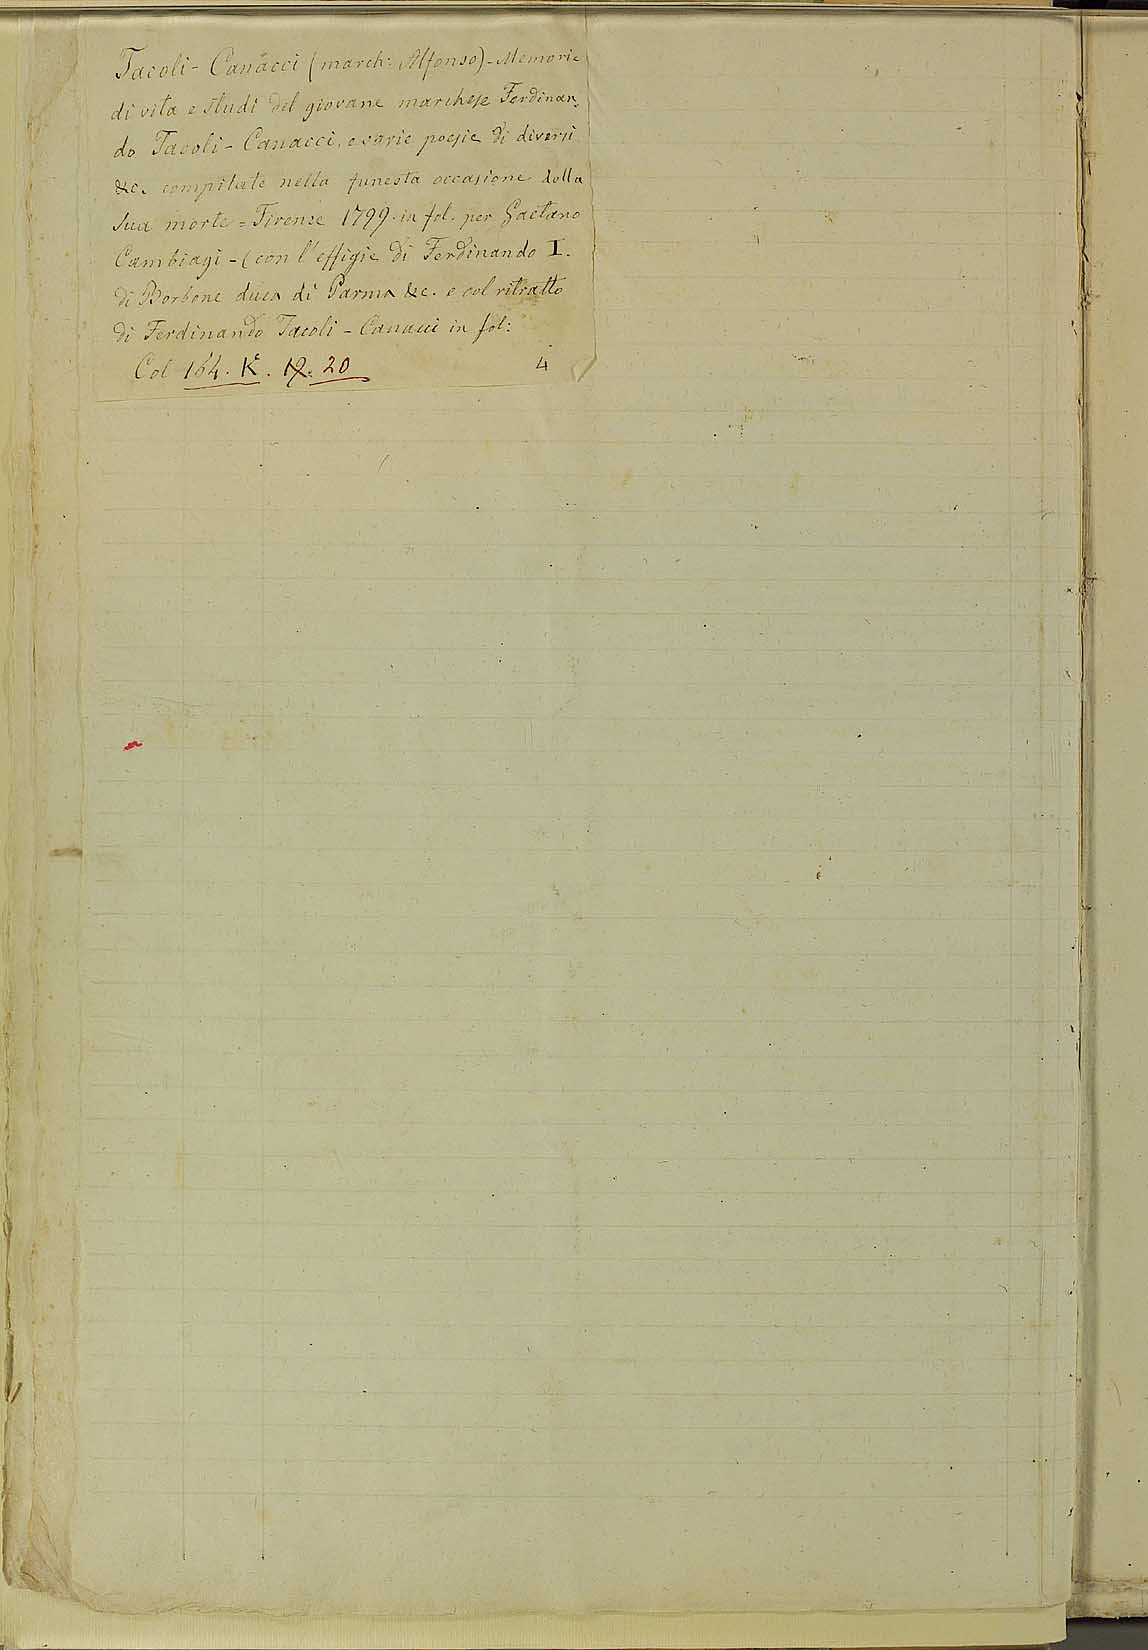 Tacoli - Canacci (march: Alfonso) - Memorie
di vita e studi del giovane marchese Ferdinan,
do Tacoli - Canacci, e varie poesie di diversi
&c. compilate nella funesta occasione della
sua morte = Firenze 1799. in fol. per Gaetano
Cambiagi - (con l'effigie di Ferdinando I.
di Borbone duca di Parma &c. e col ritratto
di Ferdinando Tacoli - Canacci in fol:
Col 164. K. 19. 20 4